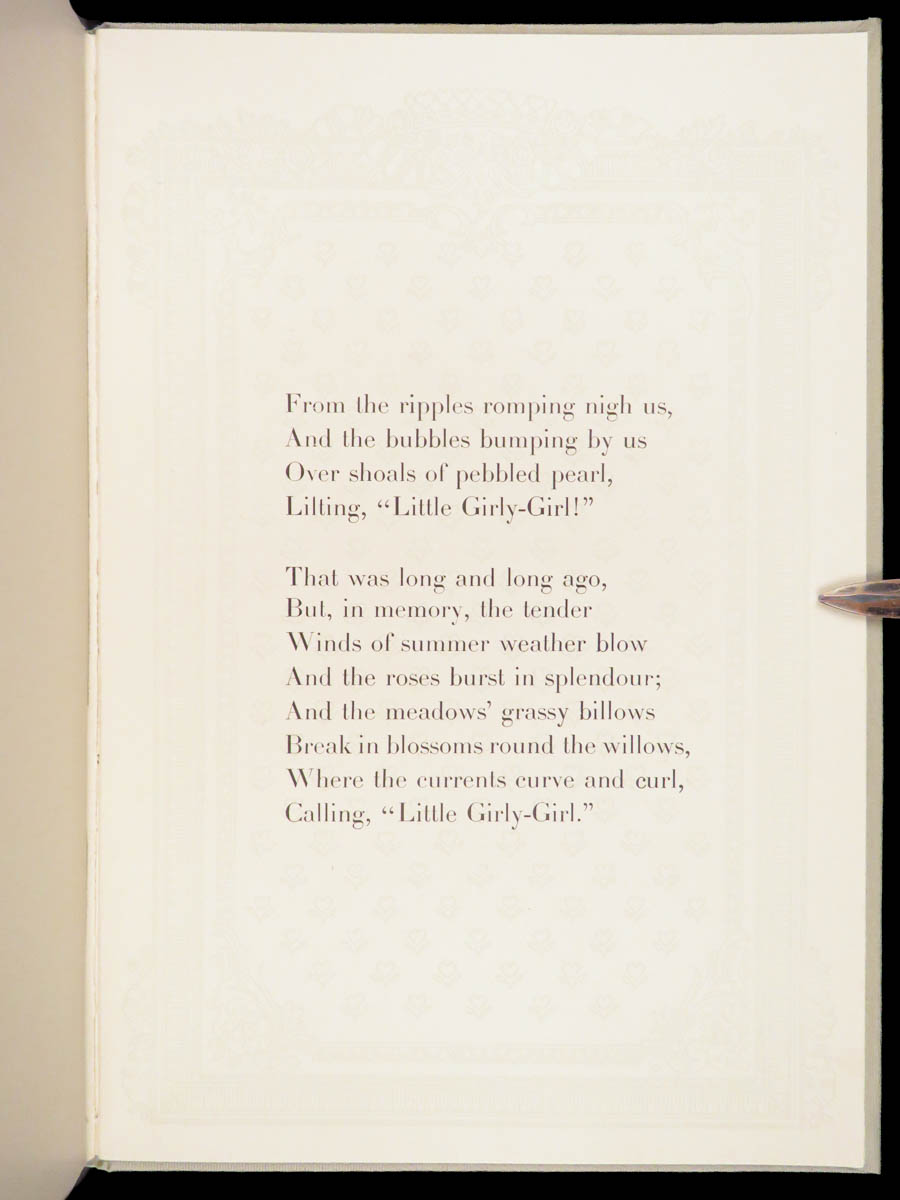 From the ripples romping nigh us,
And the bubbles bumping by us
Over shoals of pebbled pearl,
Lilting, “Little Girly-Girl!”
That was long and long ago,
But, in memory, the tender
Winds of summer weather blow
And the roses burst in splendour;
And the meadows’ grassy billows
Break in blossoms round the willows,
Where the currents curve and curl,
Calling, “Little Girly-Girl.”